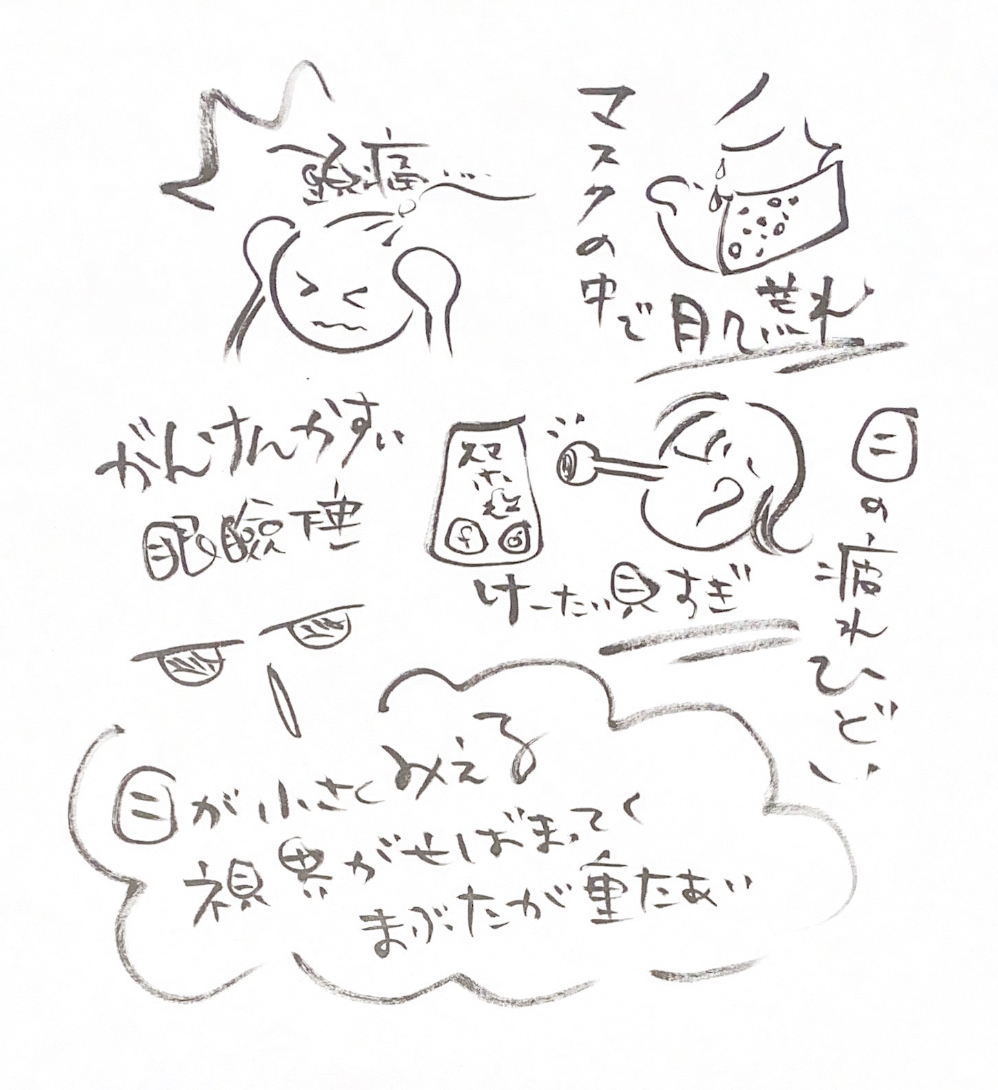 頭痛…
マスクの中で肌荒れ
がんけんかすい
眼瞼下垂
けーたい見すぎ
目の疲れひどい
目が小さくみえる
視界がせばまってく
まぶたが重たぁい